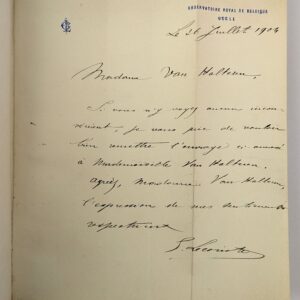 OBSERVATOIRE ROYAL DE BELGIQUE
UCCLE
Le 26 Juillet 1904
Madame Van Halteren,
Si vous n'y voyez aucun incon-
vénient, je vous prie de vouloir
bien remettre l'ouvrage ci annexé
à Mademoiselle Van Halteren.
Agréez, Madame Van Halteren,
l'expression de mes sentiments
respectueux
G. Lecointe